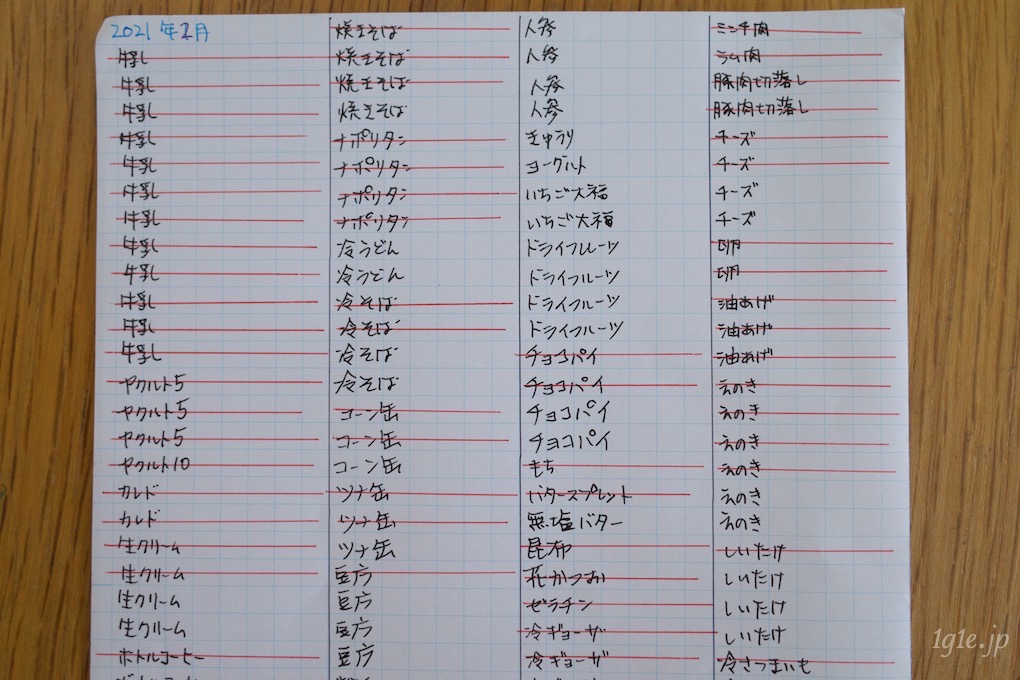 2021年1月
牛乳
牛乳
牛乳
牛乳
牛乳
牛乳
牛乳
牛乳
牛乳
牛乳
牛乳
牛乳
ヤクルト5
ヤクルト5
ヤクルト5
ヤクルト10
カレド
カレド
生クリーム
生クリーム
生クリーム
生クリーム
ボトルコーヒー
焼きそば
焼きそば
焼きそば
焼きそば
ナポリタン
ナポリタン
ナポリタン
ナポリタン
冷うどん
冷うどん
冷そば
冷そば
冷そば
冷そば
コーン缶
コーン缶
コーン缶
ツナ缶
ツナ缶
ツナ缶
豆腐
豆腐
豆腐
豆腐
人参
人参
人参
人参
きゅうり
ヨーグルト
いちご大福
いちご大福
ドライフルーツ
ドライフルーツ
ドライフルーツ
ドライフルーツ
チョコパイ
チョコパイ
チョコパイ
チョコパイ
もち
バタースプレット
無塩バター
昆布
花かつお
ゼラチン
冷ギョーザ
冷ギョーザ
ミンチ肉
ラム肉
豚肉切落し
豚肉切落し
チーズ
チーズ
チーズ
チーズ
卵
卵
油あげ
油あげ
油あげ
えのき
えのき
えのき
えのき
えのき
えのき
しいたけ
しいたけ
しいたけ
しいたけ
冷さつまいも
1g1e.jp